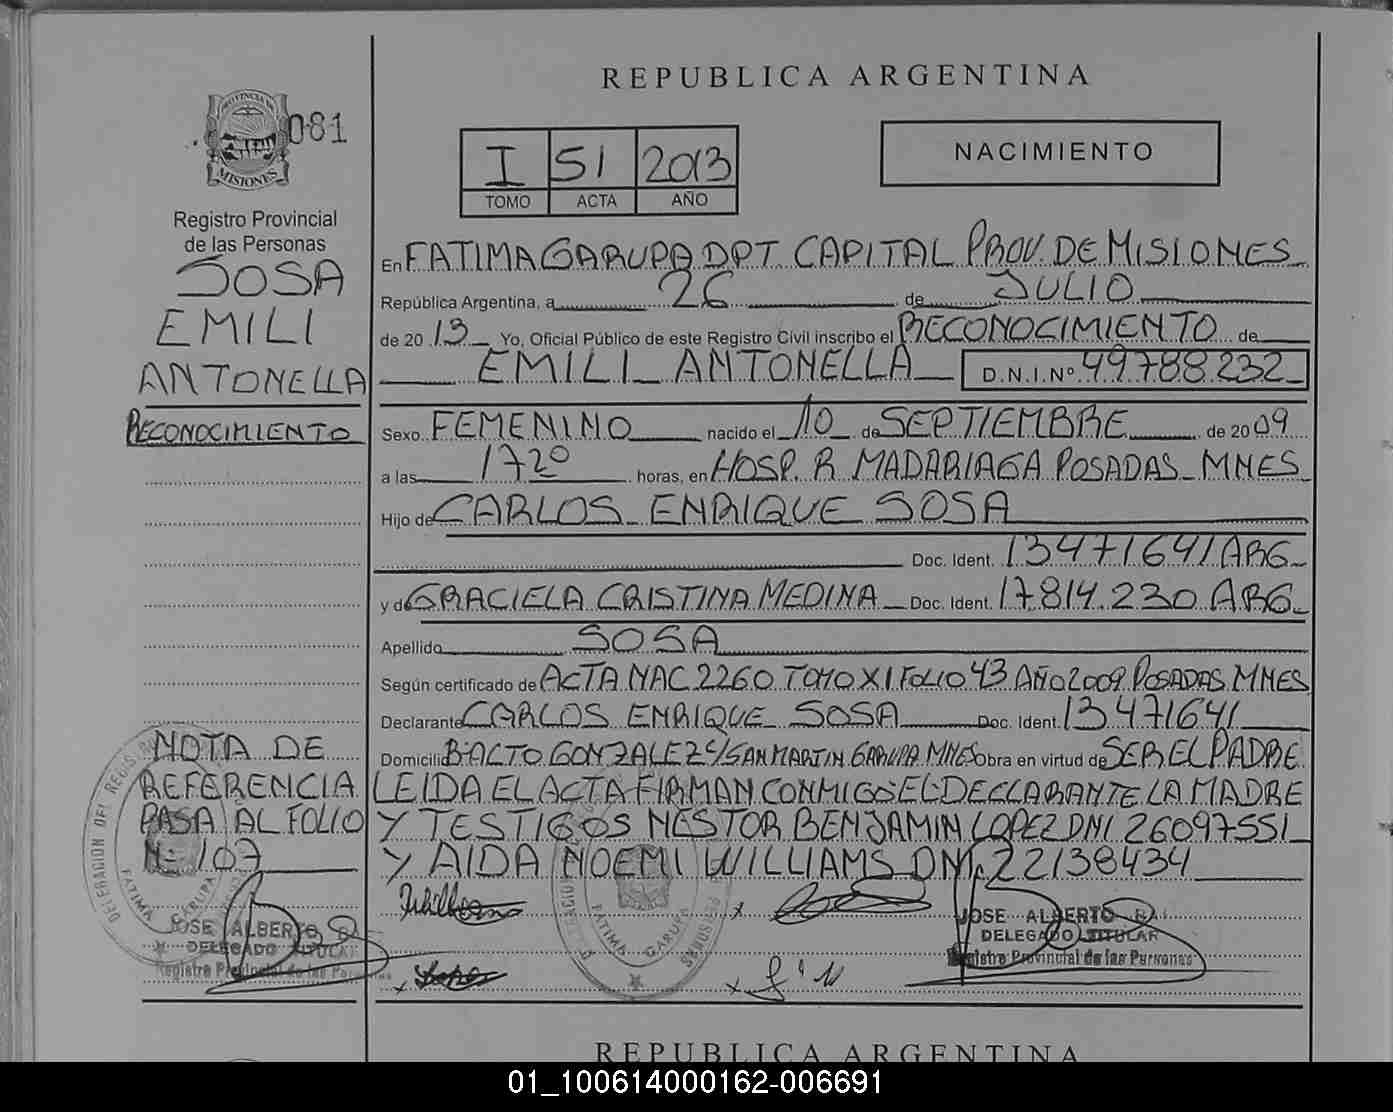 REPUBLICA ARGENTINA
PROVINCIA DE
MISIONES
081
I 51 2013
TOMO ACTA AÑO
NACIMIENTO
Registro Provincial
de las Personas
SOSA
EMILI
ANTONELLA
RECONOCIMIENTO
En FATIMA GARUPA DPT. CAPITAL PROV. DE MISIONES
República Argentina, a 26 de JULIO
de 2013 Yo, Oficial Público de este Registro Civil inscribo el RECONOCIMIENTO de
EMILI ANTONELLA D.N.I.Nº 49788232
Sexo FEMENINO nacido el 10 de SEPTIEMBRE de 2009
a las 17 20 horas, en HOSP. R. MADARIAGA POSADAS MNES
Hijo de CARLOS ENRIQUE SOSA
Doc. Ident. 13471641 ARG
y de GRACIELA CRISTINA MEDINA Doc. Ident. 17.814.230 ARG
Apellido SOSA
Según certificado de ACTA NAC 2260 TOMO XI FOLIO 43 AÑO 2009 POSADAS MNES
Declarante CARLOS ENRIQUE SOSA Doc. Ident. 13471641
Domicilio Bº ACTO GONZALEZ C/ SAN MARTIN GARUPA MNES Obra en virtud de SER EL PADRE
LEIDA EL ACTA FIRMAN CONMIGO EL DECLARANTE LA MADRE
Y TESTIGOS NESTOR BENJAMIN LOPEZ DNI 26097551
Y AIDA NOEMI WILLIAMS DNI 22138434
NOTA DE
REFERENCIA
PASA AL FOLIO
Nº 107
JOSE ALBERTO
DELEGADO TITULAR
Registro Provincial de las Personas
FATIMA GARUPA
JOSE ALBERTO
DELEGADO TITULAR
Registro Provincial de las Personas
REPUBLICA ARGENTINA
01_100614000162-006691